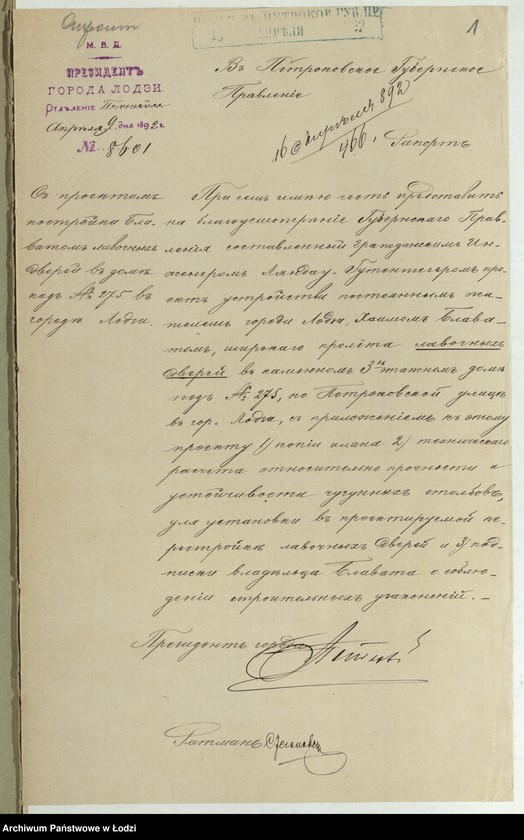 1
М. В. Д.
ПРЕЗИДЕНТЪ
ГОРОДА ЛОДЗИ.
Отдѣленіе
Апрѣля 9 дня 1892 г.
№ 8601
Въ Петроковское Губернское
Правленіе
16 Апрѣля 892
466.
Рапортъ
Съ проектомъ
постройки Бла-
ватомъ лавочныхъ
дверей въ домѣ
подъ № 275 въ
городѣ Лодзи.
При семъ имѣю честь представить
на благоусмотрѣніе Губернскаго Прав-
ленія составленный Гражданскимъ Ин-
женеромъ Ляндау-Гутентегеромъ про-
эктъ устройства постояннымъ жи-
телемъ города Лодзи, Хаимомъ Блава-
томъ, широкаго пролёта лавочныхъ
дверей въ каменномъ 3хъ этажномъ домѣ
подъ № 275, по Петроковской улицѣ
въ гор. Лодзи, съ приложеніемъ къ этому
проэкту 1/ копіи плана 2/ техническаго
расчета относительно прочности и
устойчивости чугунныхъ столбовъ,
для установки въ проектируемой пе-
рестройкѣ лавочныхъ дверей и 3/ под-
писки владѣльца Блавата о соблю-
деніи строительныхъ узаконеній.-
Президентъ города
Ратманъ
Archiwum Państwowe w Łodzi